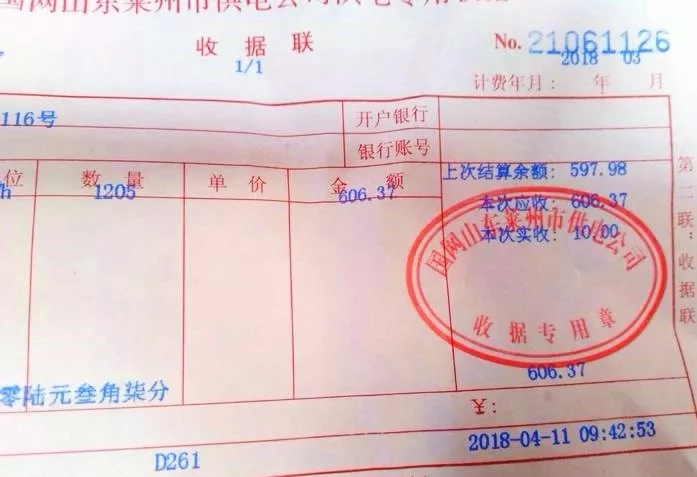 国网山东莱州市供电公司供电专用收据
收据联
1/1
No. 21061126
2018 03
计费年月： 年 月
116号
开户银行
银行账号
位 数量 单价 金额
上次结算余额: 597.98
h 1205 606.37
本次应收: 606.37
本次实收: 10.00
国网山东莱州市供电公司
收据专用章
606.37
零陆元叁角柒分
2018-04-11 09:42:53
D261
第二联：收据联